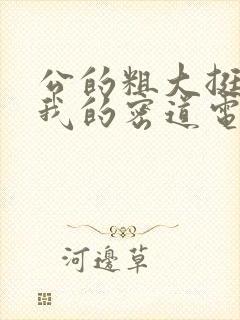 公的粗大挺
我的密道電
河邊草